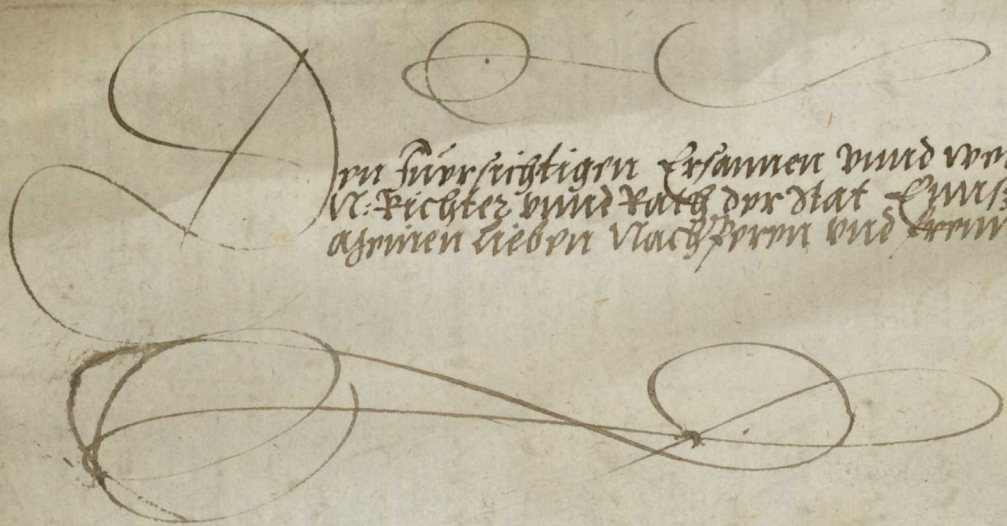 Den Fuersichtigen Ersamen vnnd wei
N: Richter vnnd Rath der Stat
meinen lieben Nachpern vnd freun